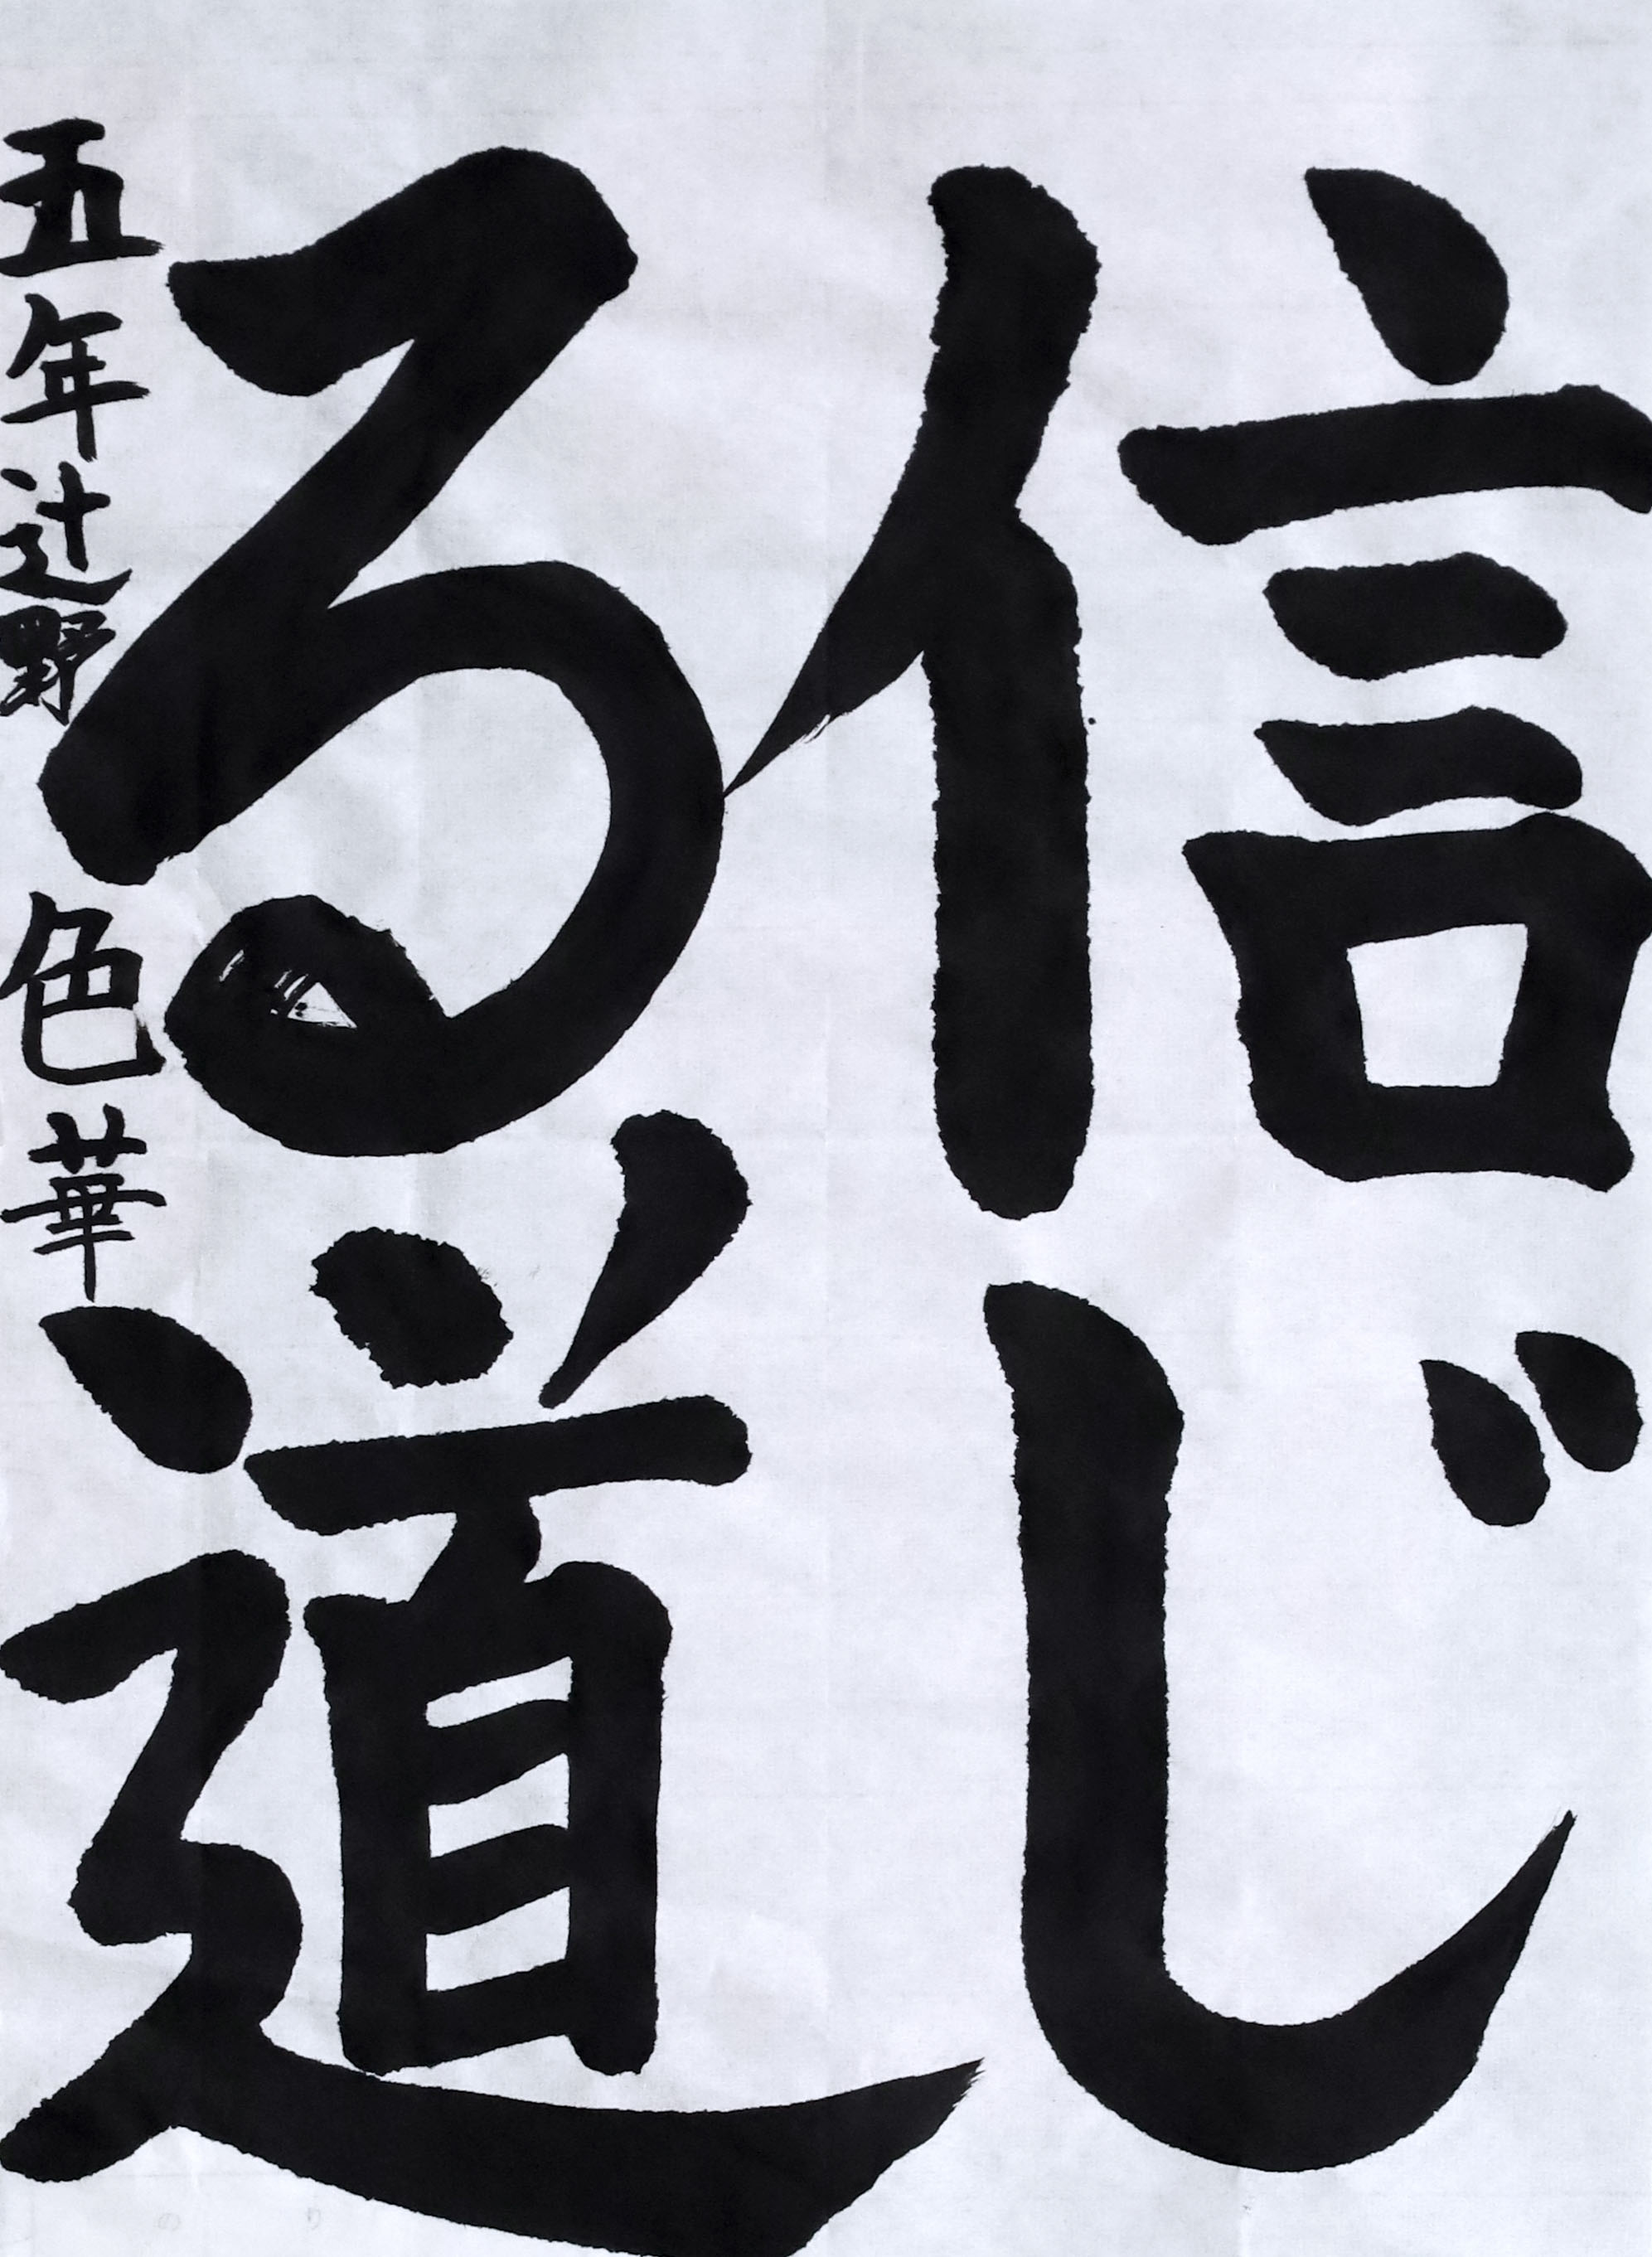 信じ
る道
五年辻野色華